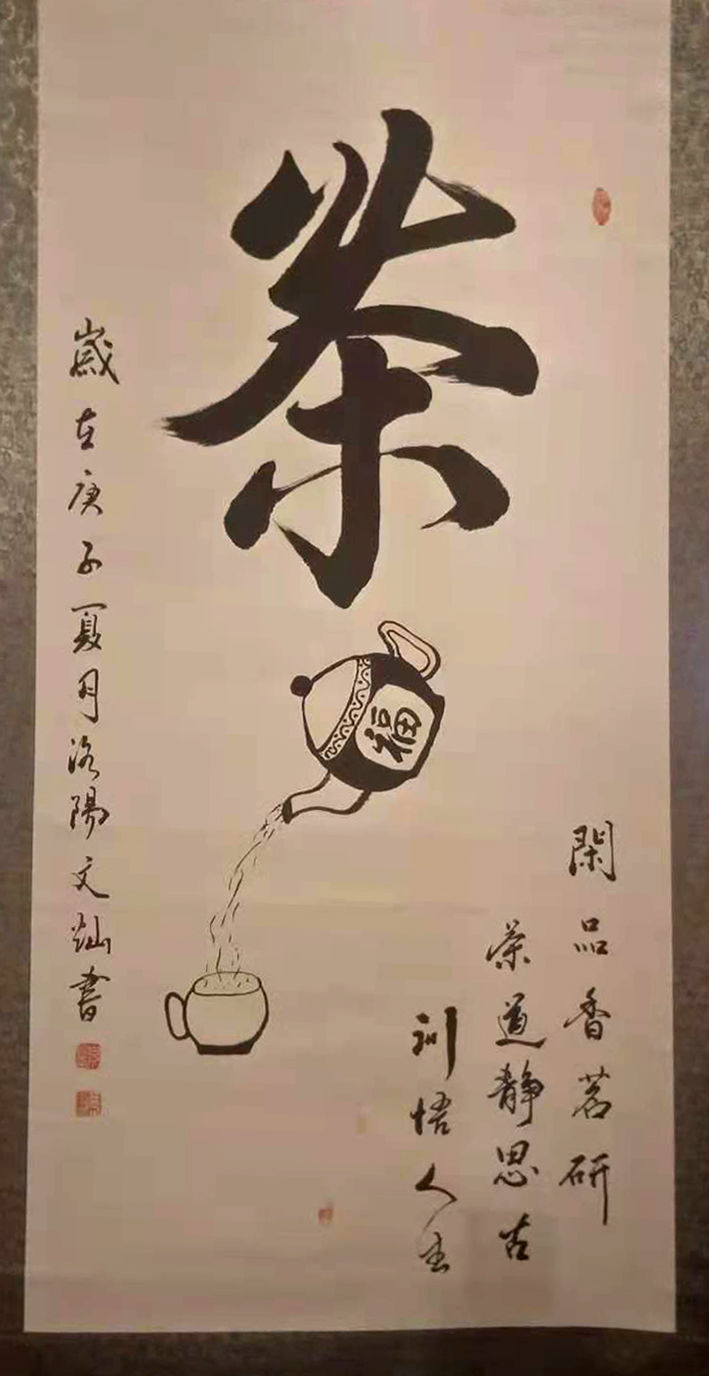 茶
福
閑品香茗研
茶道靜思古
訓悟人生
歲在庚子夏月洛陽文灿書